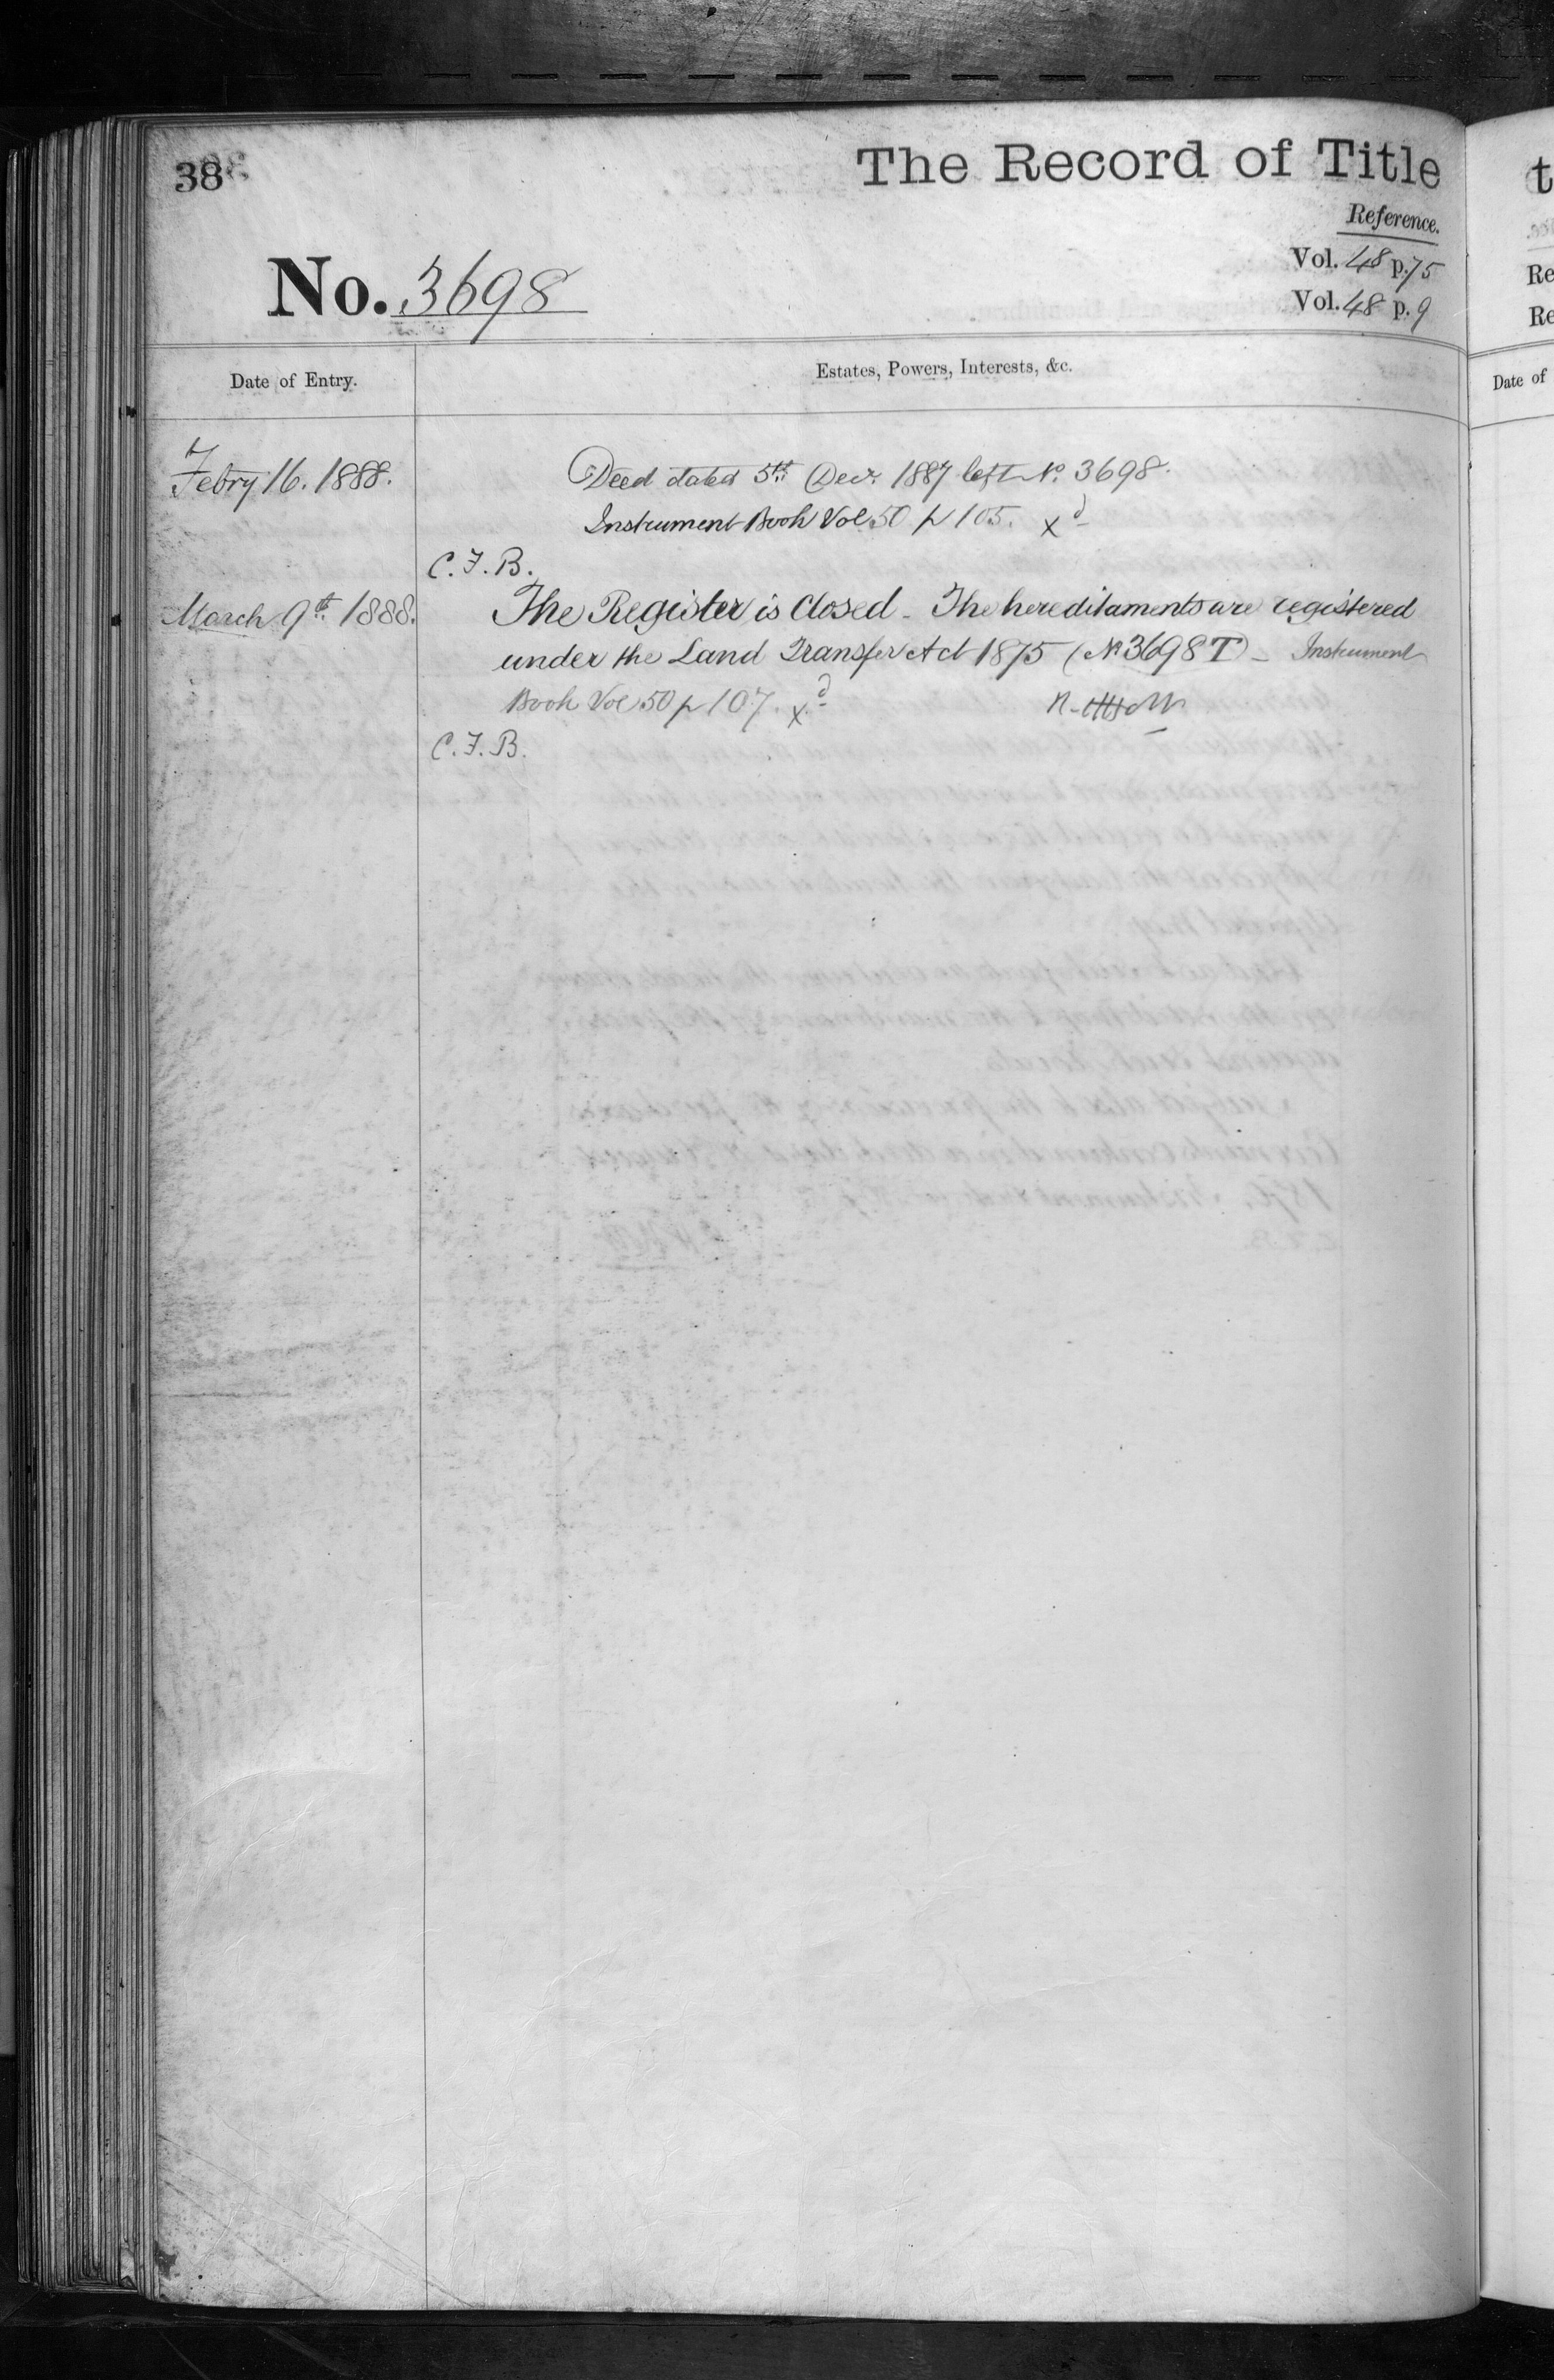 38
The Record of Title
Reference.
Vol. 48 p. 75
No. 3698
Vol. 48 p. 9
Date of Entry.
Estates, Powers, Interests, &c.
Febry 16. 1888.
Deed dated 5th Decr. 1887 left No. 3698.
Instrument Book Vol 50 p 105. xd
C.F.B.
March 9th 1888.
The Register is Closed - The hereditaments are registered
under the Land Transfer Act 1875 (No 3698 T) - Instrument
Book Vol 50 p 107. xd
C.F.B.
t
Re
Re
Date of